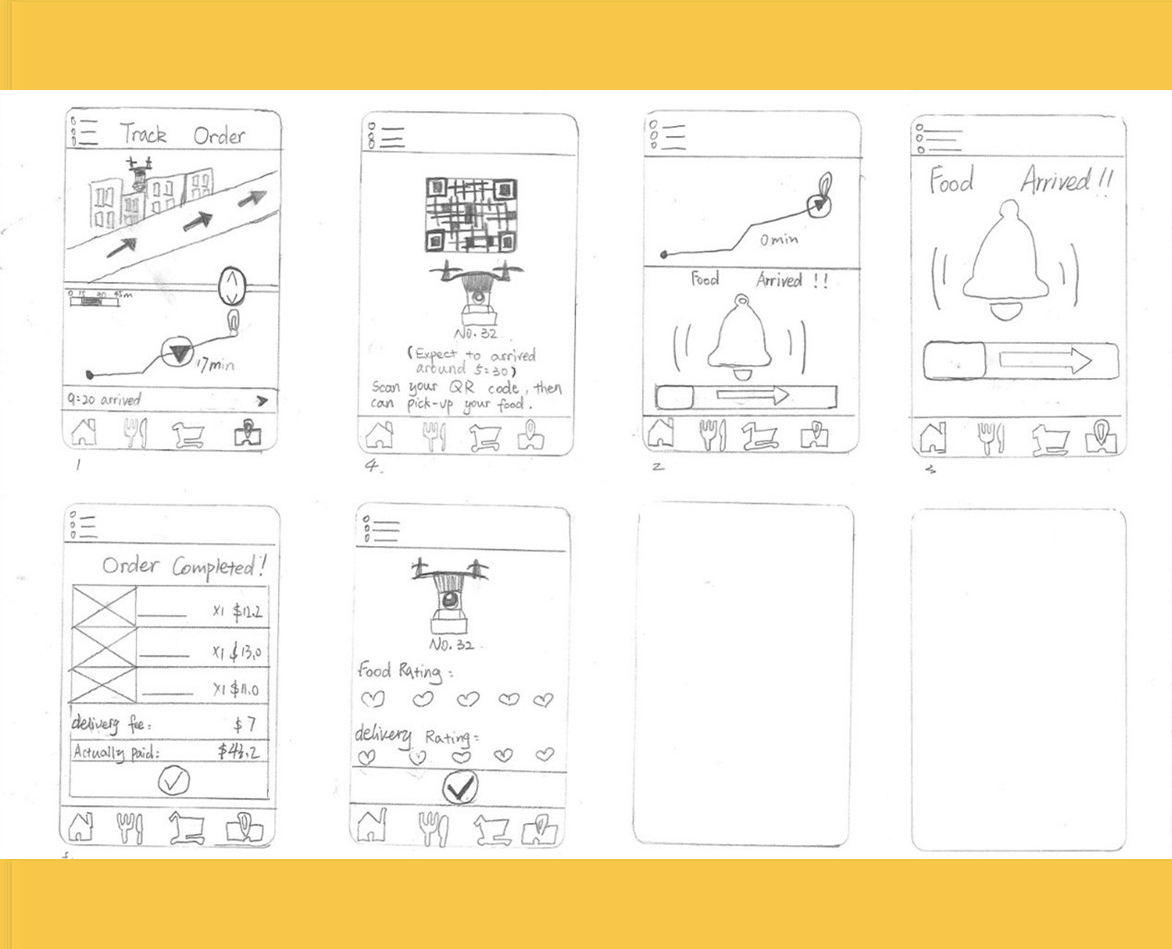 Track Order
17min
9:20 arrived
1
No.32
(Expect to arrived
around 5:30)
Scan your QR code, then
can pick-up your food.
4.
0min
Food Arrived !!
2
Food Arrived!!
3
Order Completed!
x1 $12.2
x1 $13.0
x1 $11.0
delivery fee: $7
Actually paid: $43.2
No.32
Food Rating:
delivery Rating: